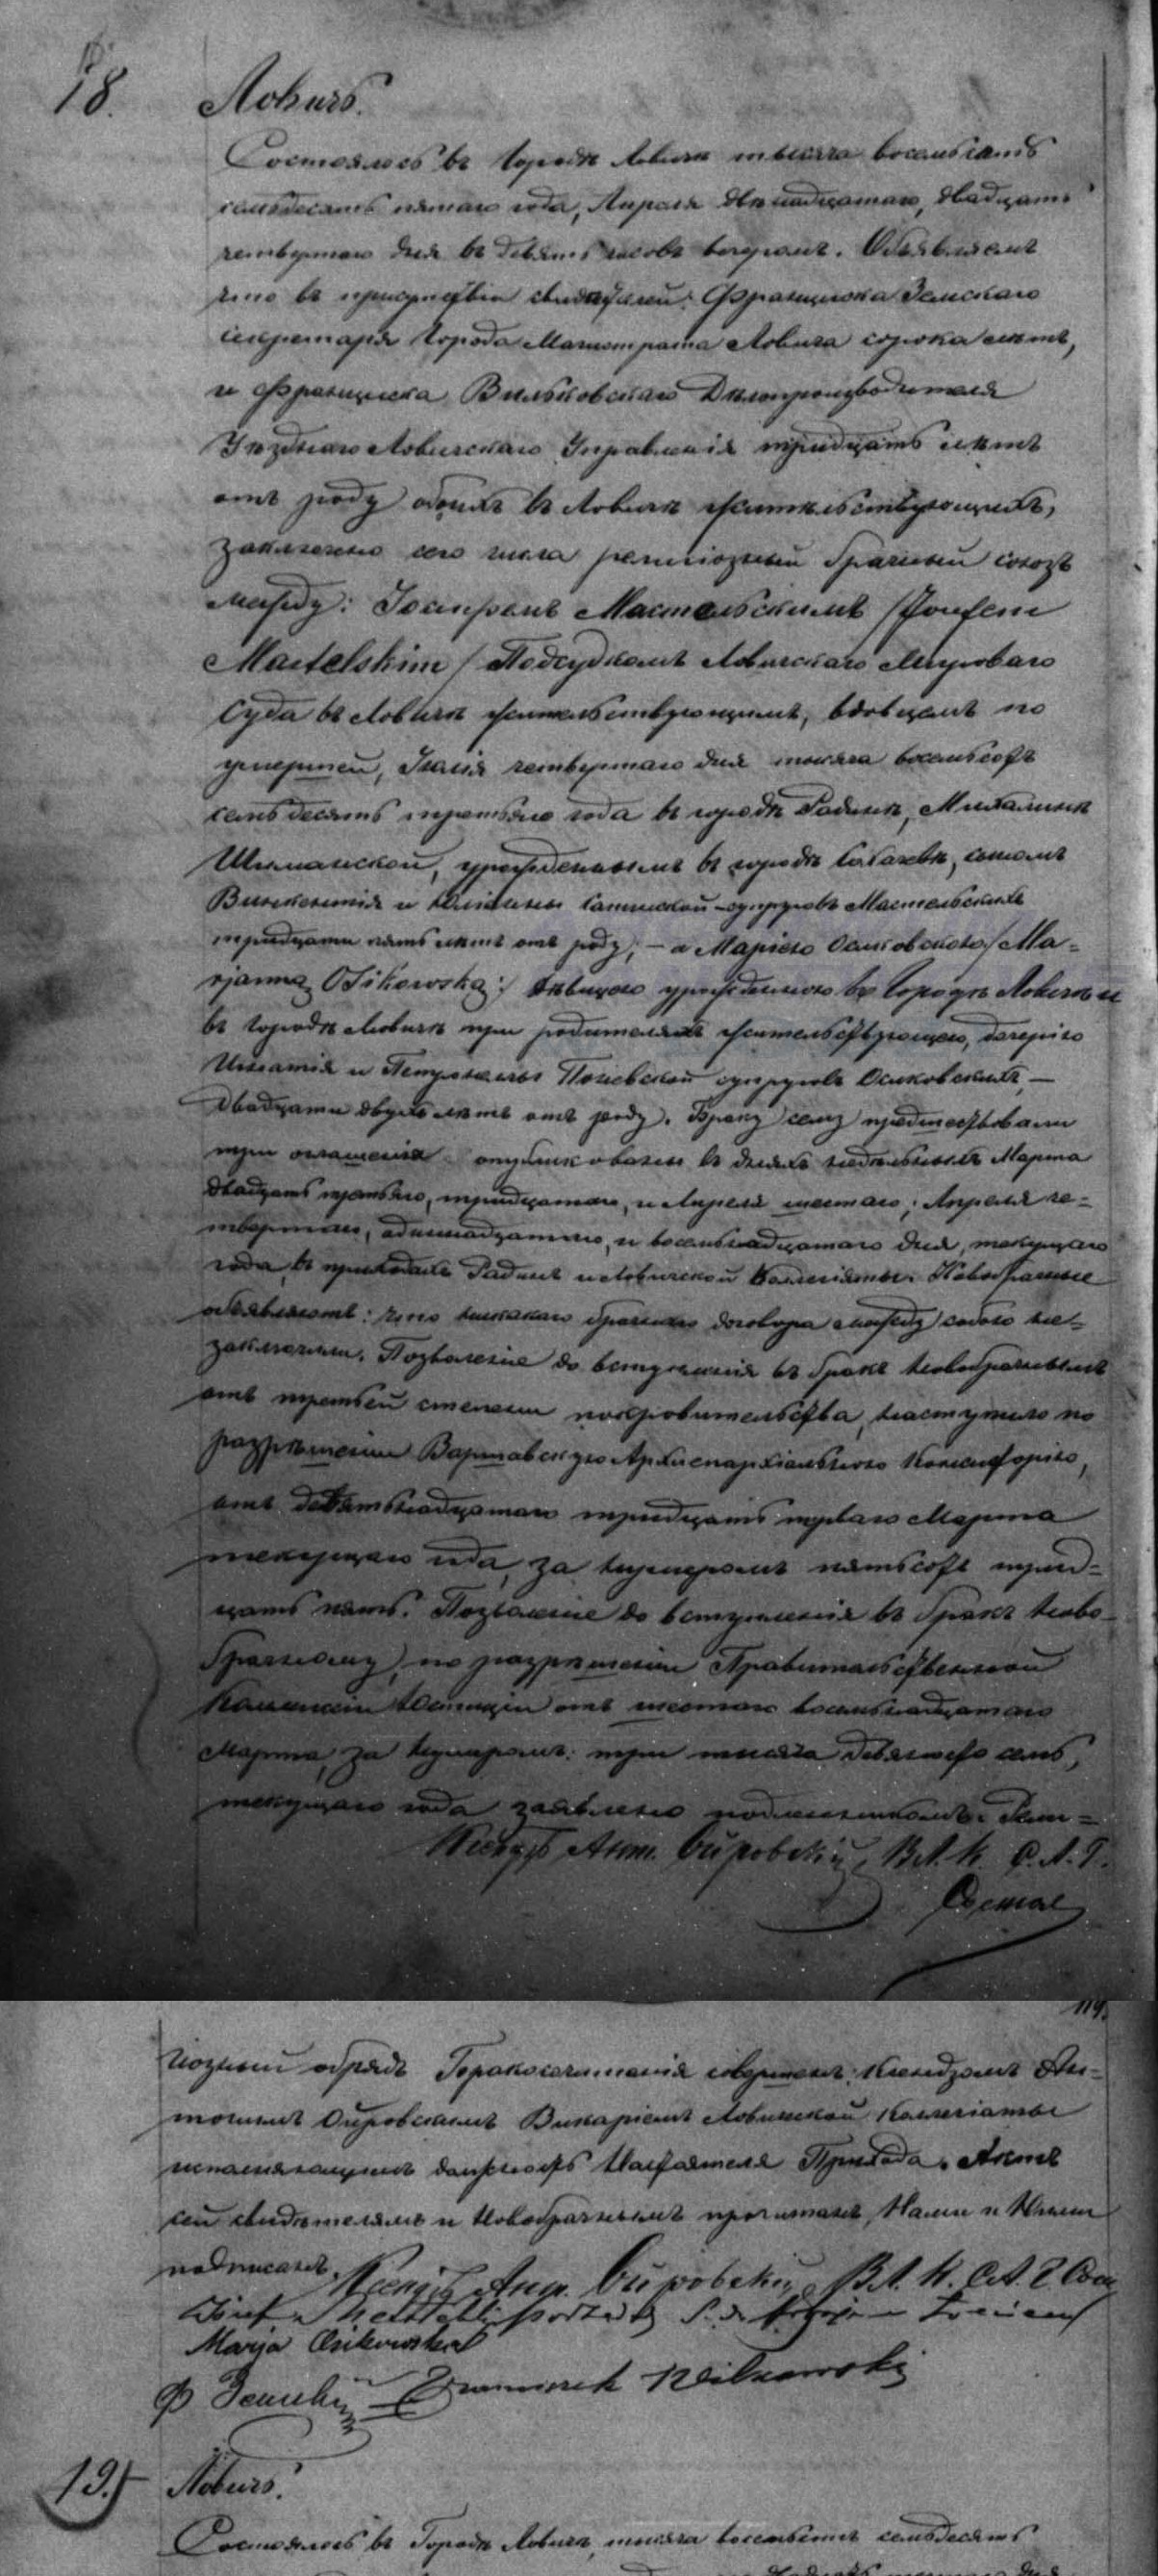 18.
Ловичъ.
Состоялось въ Городѣ Ловичѣ тысяча восемьсотъ
семьдесятъ пятаго года, Апреля двѣнадцатаго, двадцать
четвертаго дня въ девять часовъ вечеромъ. Объявляемъ
что въ присутствіи свидѣтелей: Францишка Земскаго
секретаря Города Магистрата Ловича сорока лѣтъ,
и Францишка Вильковскаго Дѣлопроизводителя
Уѣзднаго Ловичскаго Управленія тридцать лѣтъ
отъ роду обоихъ въ Ловичѣ жительствующихъ,
заключено сего числа религіозный брачный союзъ
между: Іосифомъ Мастельскимъ /Józefem
Mastelskim/ Подсудкомъ Ловичскаго Мироваго
Суда въ Ловичѣ жительствующимъ, вдовцемъ по
умершей, Іюлія четвертаго дня тысяча восемьсотъ
семьдесятъ третьяго года въ городѣ Радинѣ, Михалинѣ
Шиманской, урожденнымъ въ городѣ Сохачевѣ, сыномъ
Викентія и Юліанны супруговъ Мастельскихъ
тридцати пять лѣтъ отъ роду; — а Маріею Осиковскою /Ma=
rjanną Osikowską:/ дѣвицею урожденною въ Городѣ Ловичѣ и
въ Городѣ Ловичѣ при родителяхъ жительствующею, дочерію
Игнатія и Петронелы супруговъ Осиковскихъ, —
двадцати двухъ лѣтъ отъ роду. Браку сему предшествовали
три оглашенія опубликованы въ дняхъ недѣльныхъ Марта
двадцать третьяго, тридцатаго, и Апреля шестаго; Апреля че=
твертаго, одиннадцатаго, и восемнадцатаго дня, текущаго
года, въ приходахъ Радинъ и Ловичской Коллегіяты. Новобрачные
объявляютъ: что никакаго брачнаго договора между собою не=
заключили. Позволеніе до вступленія въ бракъ Новобрачнымъ
отъ третьей степени покровительства, наступило по
разрѣшеніи Варшавскую Архіепархіальною Консисторію,
отъ девятьнадцатаго тридцать перваго Марта
текущаго года, за нумеромъ пятьсотъ трид=
цать пять. Позволеніе до вступленія въ бракъ Ново-
брачному, по разрѣшеніи Правительственной
Коммисіи Юстиціи отъ шестаго восемьнадцатаго
Марта, за нумеромъ: три тысяча девятьсотъ семь,
текущаго года заявлено подлинникомъ. Рели=
Ксендзъ Ант. Ойровскій, В.Л.К. С.А.Г.
119.
гіозный обрядъ Бракосочитанія совершенъ: Ксендзомъ Ан=
тонимъ Ойровскимъ Викаріемъ Ловичской Коллегіаты
исполняющимъ должность Настоятеля Прихода. Актъ
сей свидѣтелямъ и Новобрачнымъ прочитанъ, Нами и Ними
подписанъ.
Ксендзъ Ант. Ойровскій В.Л.К. С.А.Г.
Józef Mastelski Podsędek
Marja Osikowska
Ф Земскій Franciszek Wilkowski
19.
Ловичъ.
Состоялось въ Городѣ Ловичѣ, тысяча восемьсотъ семьдесятъ